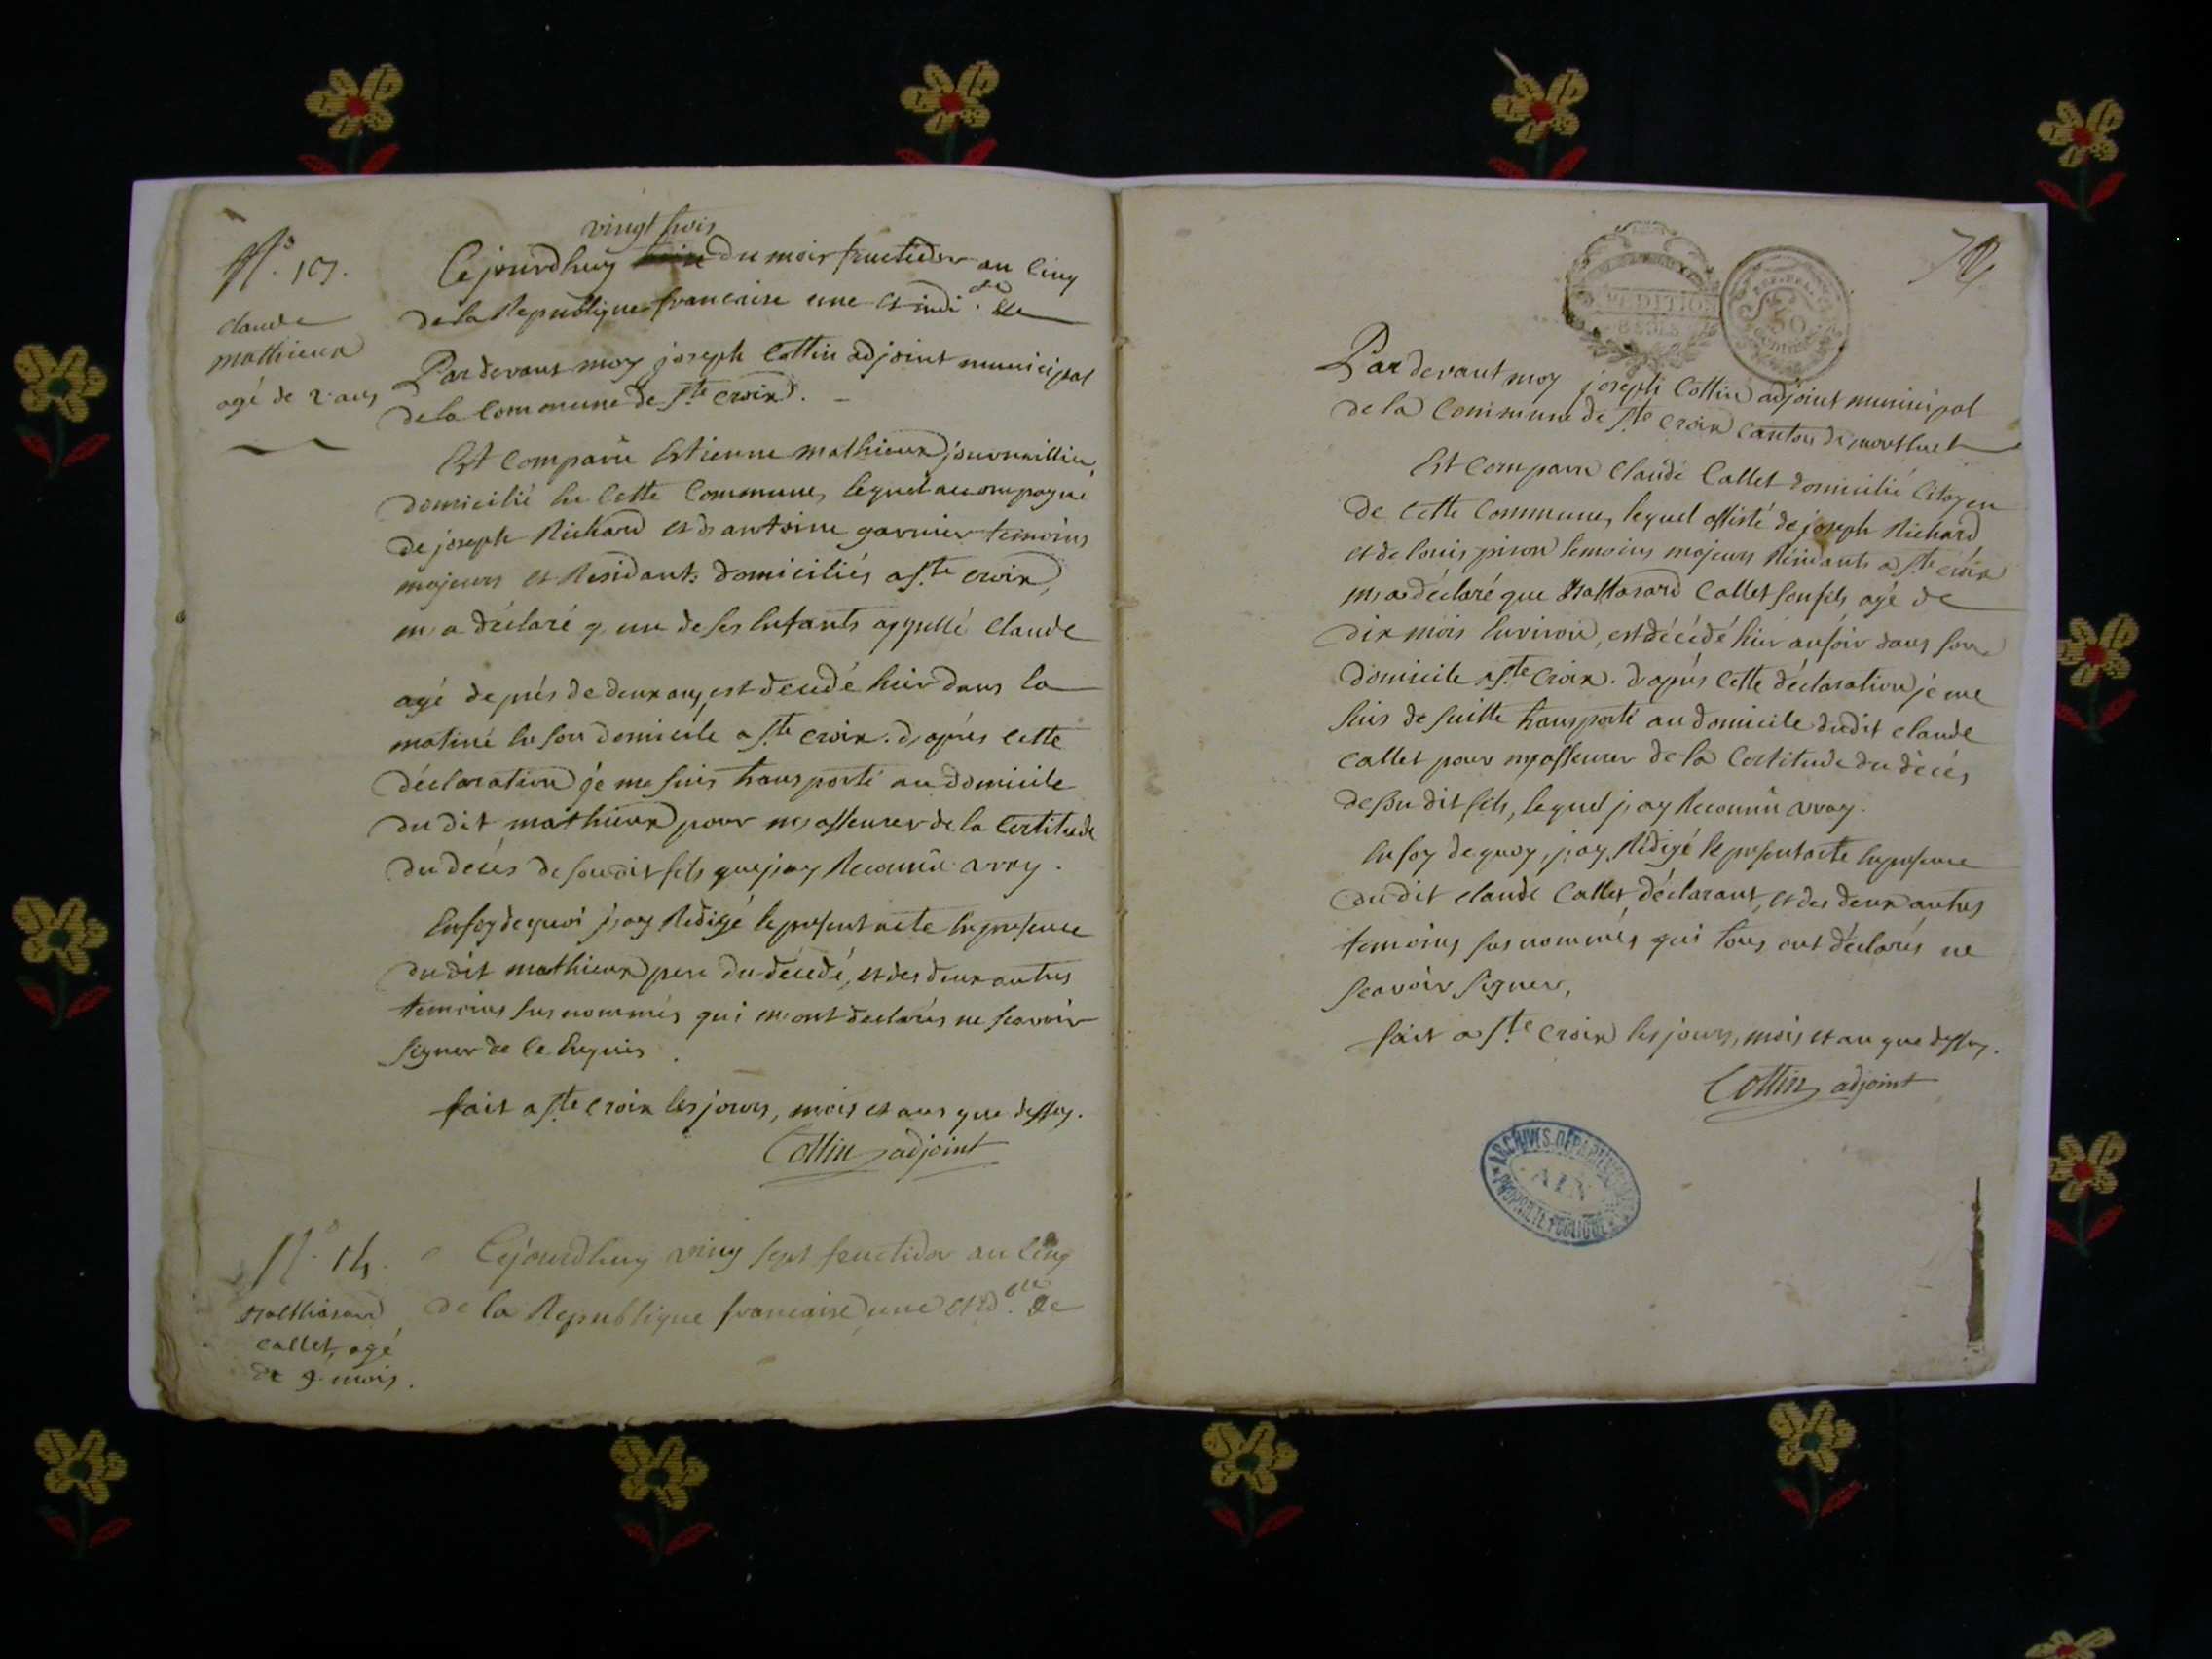 vingt trois
Cejourdhuy du mois fructidor an Cinq
de la Republique francaise une et indi.ble
Pardevant moy joseph Cottin adjoint municipal
de la Commune de Ste croix. –
N.o
claude
mathieux
agé de 2 ans
Est Comparû Estienne mathieux journaillier,
domicilié En Cette Commune, lequel accompagné
de joseph Richard et d'antoine garnier temoins
majeurs et Residants domiciliés a Ste croix,
m'a déclaré q'un de ses Enfants appellé Claude
agé de prés de deux ans, est decedé hier dans la
matiné En son domicile a Ste croix. d'aprés cette
déclaration je me suis transporté au domicile
du dit mathieux pour m'asseurer de la Certitude
du decés de son dit fils que j'ay Reconnû vray.
En foy de quoi j'ay Redigé le present acte En presence
du dit mathieux pere du décedé, et des deux autres
temoins sus nommés qui m'ont declarés ne scavoir
signer de ce Enquis.
fait a Ste croix les jours, mois et ans que dessus.
Cottin adjoint
N.o 14.
Balthasard
callet, agé
de 9 mois.
Cejourdhuy ving sept fructidor an Cinq
de la Republique francaise une et id.ble
EXPEDITION
50
Centimes
Par devant moy joseph Cottin adjoint municipal
de la Commune de Ste croix canton de montluel
Est Comparu Claude Callet domicilié Citoyen
de cette Commune, lequel assisté de joseph Richard
et de louis pison temoins majeurs Résidants a Ste croix
m'a déclaré que Baltasard Callet son fils agé de
dix mois Environ, est décédé hier au soir dans son
domicile a Ste Croix. d'aprés cette déclaration je me
suis de suitte transporté au domicile dudit claude
callet pour m'asseurer de la Certitude du décés
de son dit fils, lequel j'ay Reconnû vray.
En foy de quoy, j'ay Rédigé le present acte En presence
du dit claude Callet déclarant, et des deux autres
temoins sus nommés qui tous ont déclarés ne
scavoir signer,
fait a Ste Croix les jours, mois et an que dessus.
Cottin adjoint
ARCHIVES DÉPARTEMENTALES
AIN
PROPRIÉTÉ PUBLIQUE